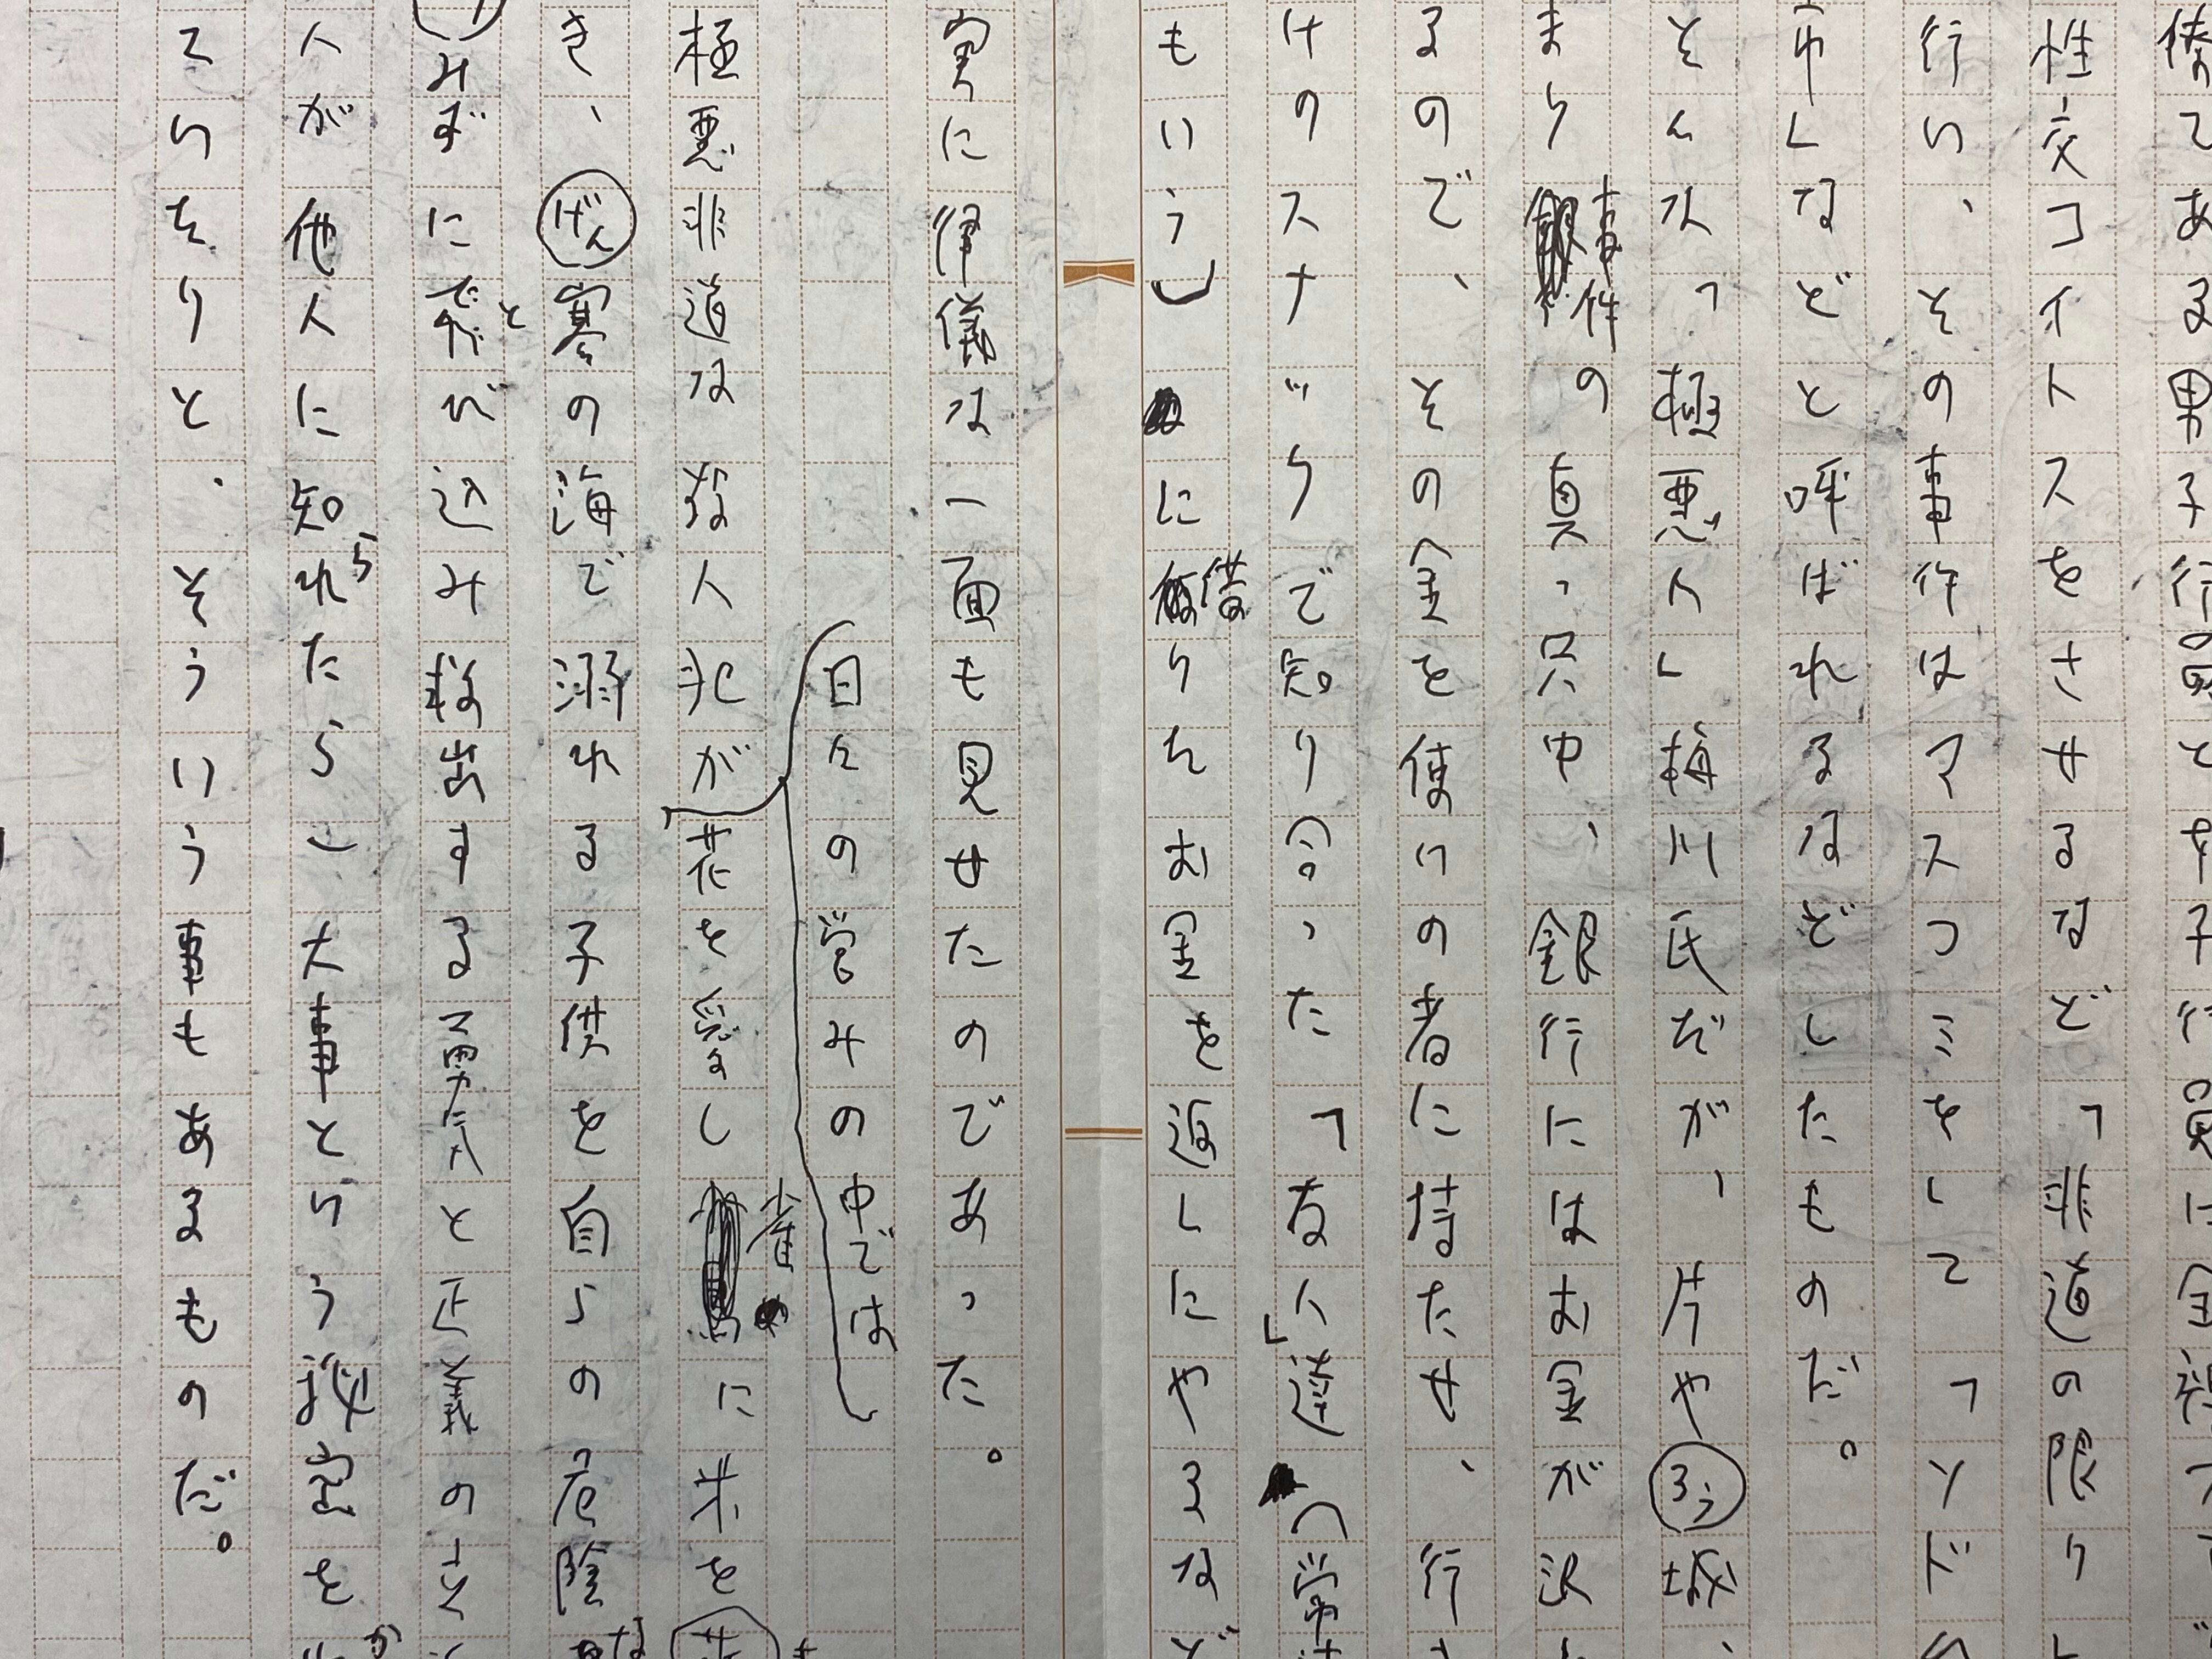 倭てある男子行員と女子行員に全裸で
性交コイトスをさせるなど「非道の限り
行い、その事件はマスコミをして「ソド
市」などと呼ばれるなどしたものだ。
そんな「極悪人」梅川氏だが、片や(ろう)城
まり事件の真っ只中、銀行にはお金が沢
るので、その金を使いの者に持たせ、行
けのスナックで知り合った「友人」達へ常
もいう)に借りたお金を返しにやるなど
実に律儀な一面も見せたのであった。
日々の営みの中では
極悪非道な殺人犯が花を愛し雀に米を
き、(げん)寒の海で溺れる子供を自らの危険
みずにと飛び込み救出する勇気と正義の
人が他人に知られたらこ大事という秘密を
ていをりと、そういう事もあるものだ。